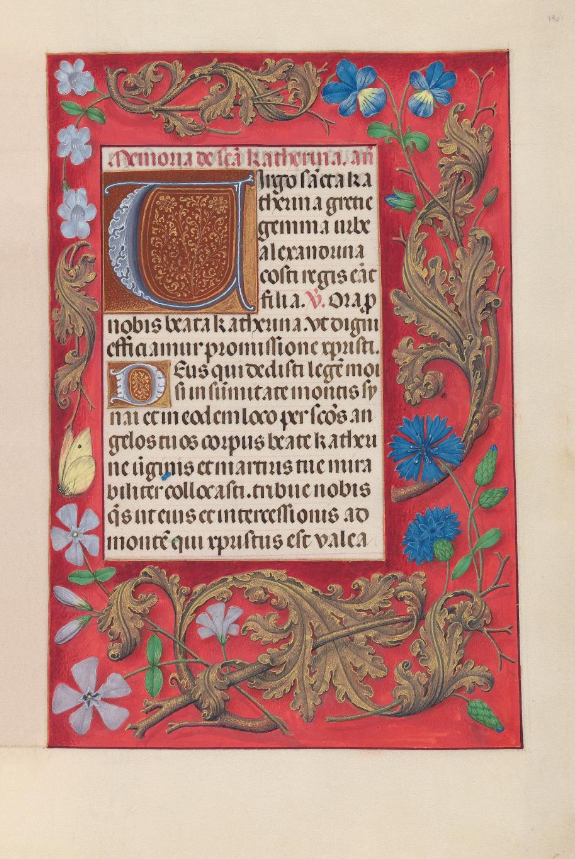 Memoria de scã Katherina. añ
Virgo sãcta ka
therina grecie
gemma urbe
alexandrina
costi regis erat
filia. V̷. Ora p
nobis beata katherina. Vt digni
efficiamur promissione xpristi.
Deus qui dedisti legẽ moi
si in sũmitate montis sy
nai et in eodem loco per scõs an
gelos tuos corpus beate katheri
ne uirginis et martiris tue mira
biliter collocasti. tribue nobis
q̃s ut eius et intercessionis ad
montẽ qui xpristus est valea